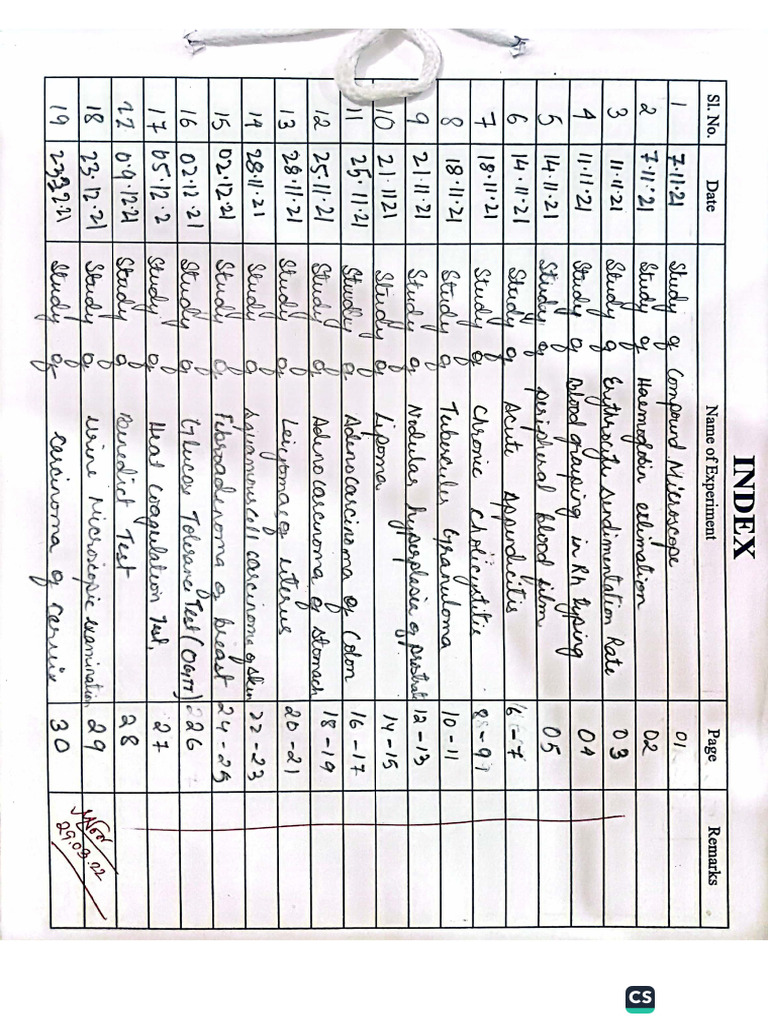 INDEX
Sl. No. Date Name of Experiment Page Remarks
1 7.11.21 Study of Compound Microscope 01
2 7.11.21 Study of Haemoglobin estimation 02
3 11.11.21 Study of Erythrocyte sendimentation Rate 03
4 11.11.21 Study of Blood grouping in Rh typing 04
5 14.11.21 Study of peripheral blood film 05
6 14.11.21 Study of Acute Appendicitis 6-7
7 18.11.21 Study of Chronic Cholicystitis 8-9
8 18.11.21 Study of Tubercular Granuloma 10-11
9 21.11.21 Study of Nodular hyperplasia of prostrate 12-13
10 21.1121 Study of Lipoma 14-15
11 25.11.21 Study of Adinocarcinoma of Colon 16-17
12 25.11.21 Study of Adinocarcinoma of Stomach 18-19
13 28.11.21 Study of Leiyomas of uterus 20-21
14 28.11.21 Study of Squamous cell carcinoma of skin 22-23
15 02.12.21 Study of Fibroadenoma of breast 24-25
16 02.12.21 Study of Glucose Tolerance Test (OGTT) 26
17 05.12.2 Study of Heat coagulation Test, 27
09.12.21 Study of Benedict Test 28
18 23.12.21 Study of Urine Microscopic examination 29
19 Study of carcinoma of cervix 30
29.03.22
CS